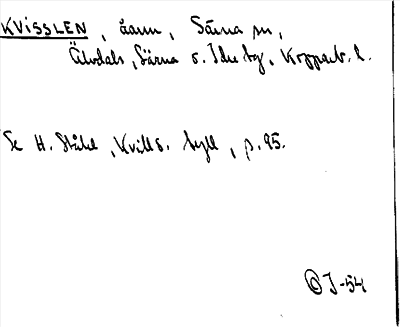 KVISSLEN, åarm, Särna sn,
Älvdals, Särna o. Idre tg, Kopparb. l.
Se H. Ståhl, Kvill o. tyll, p. 95.
© J-54